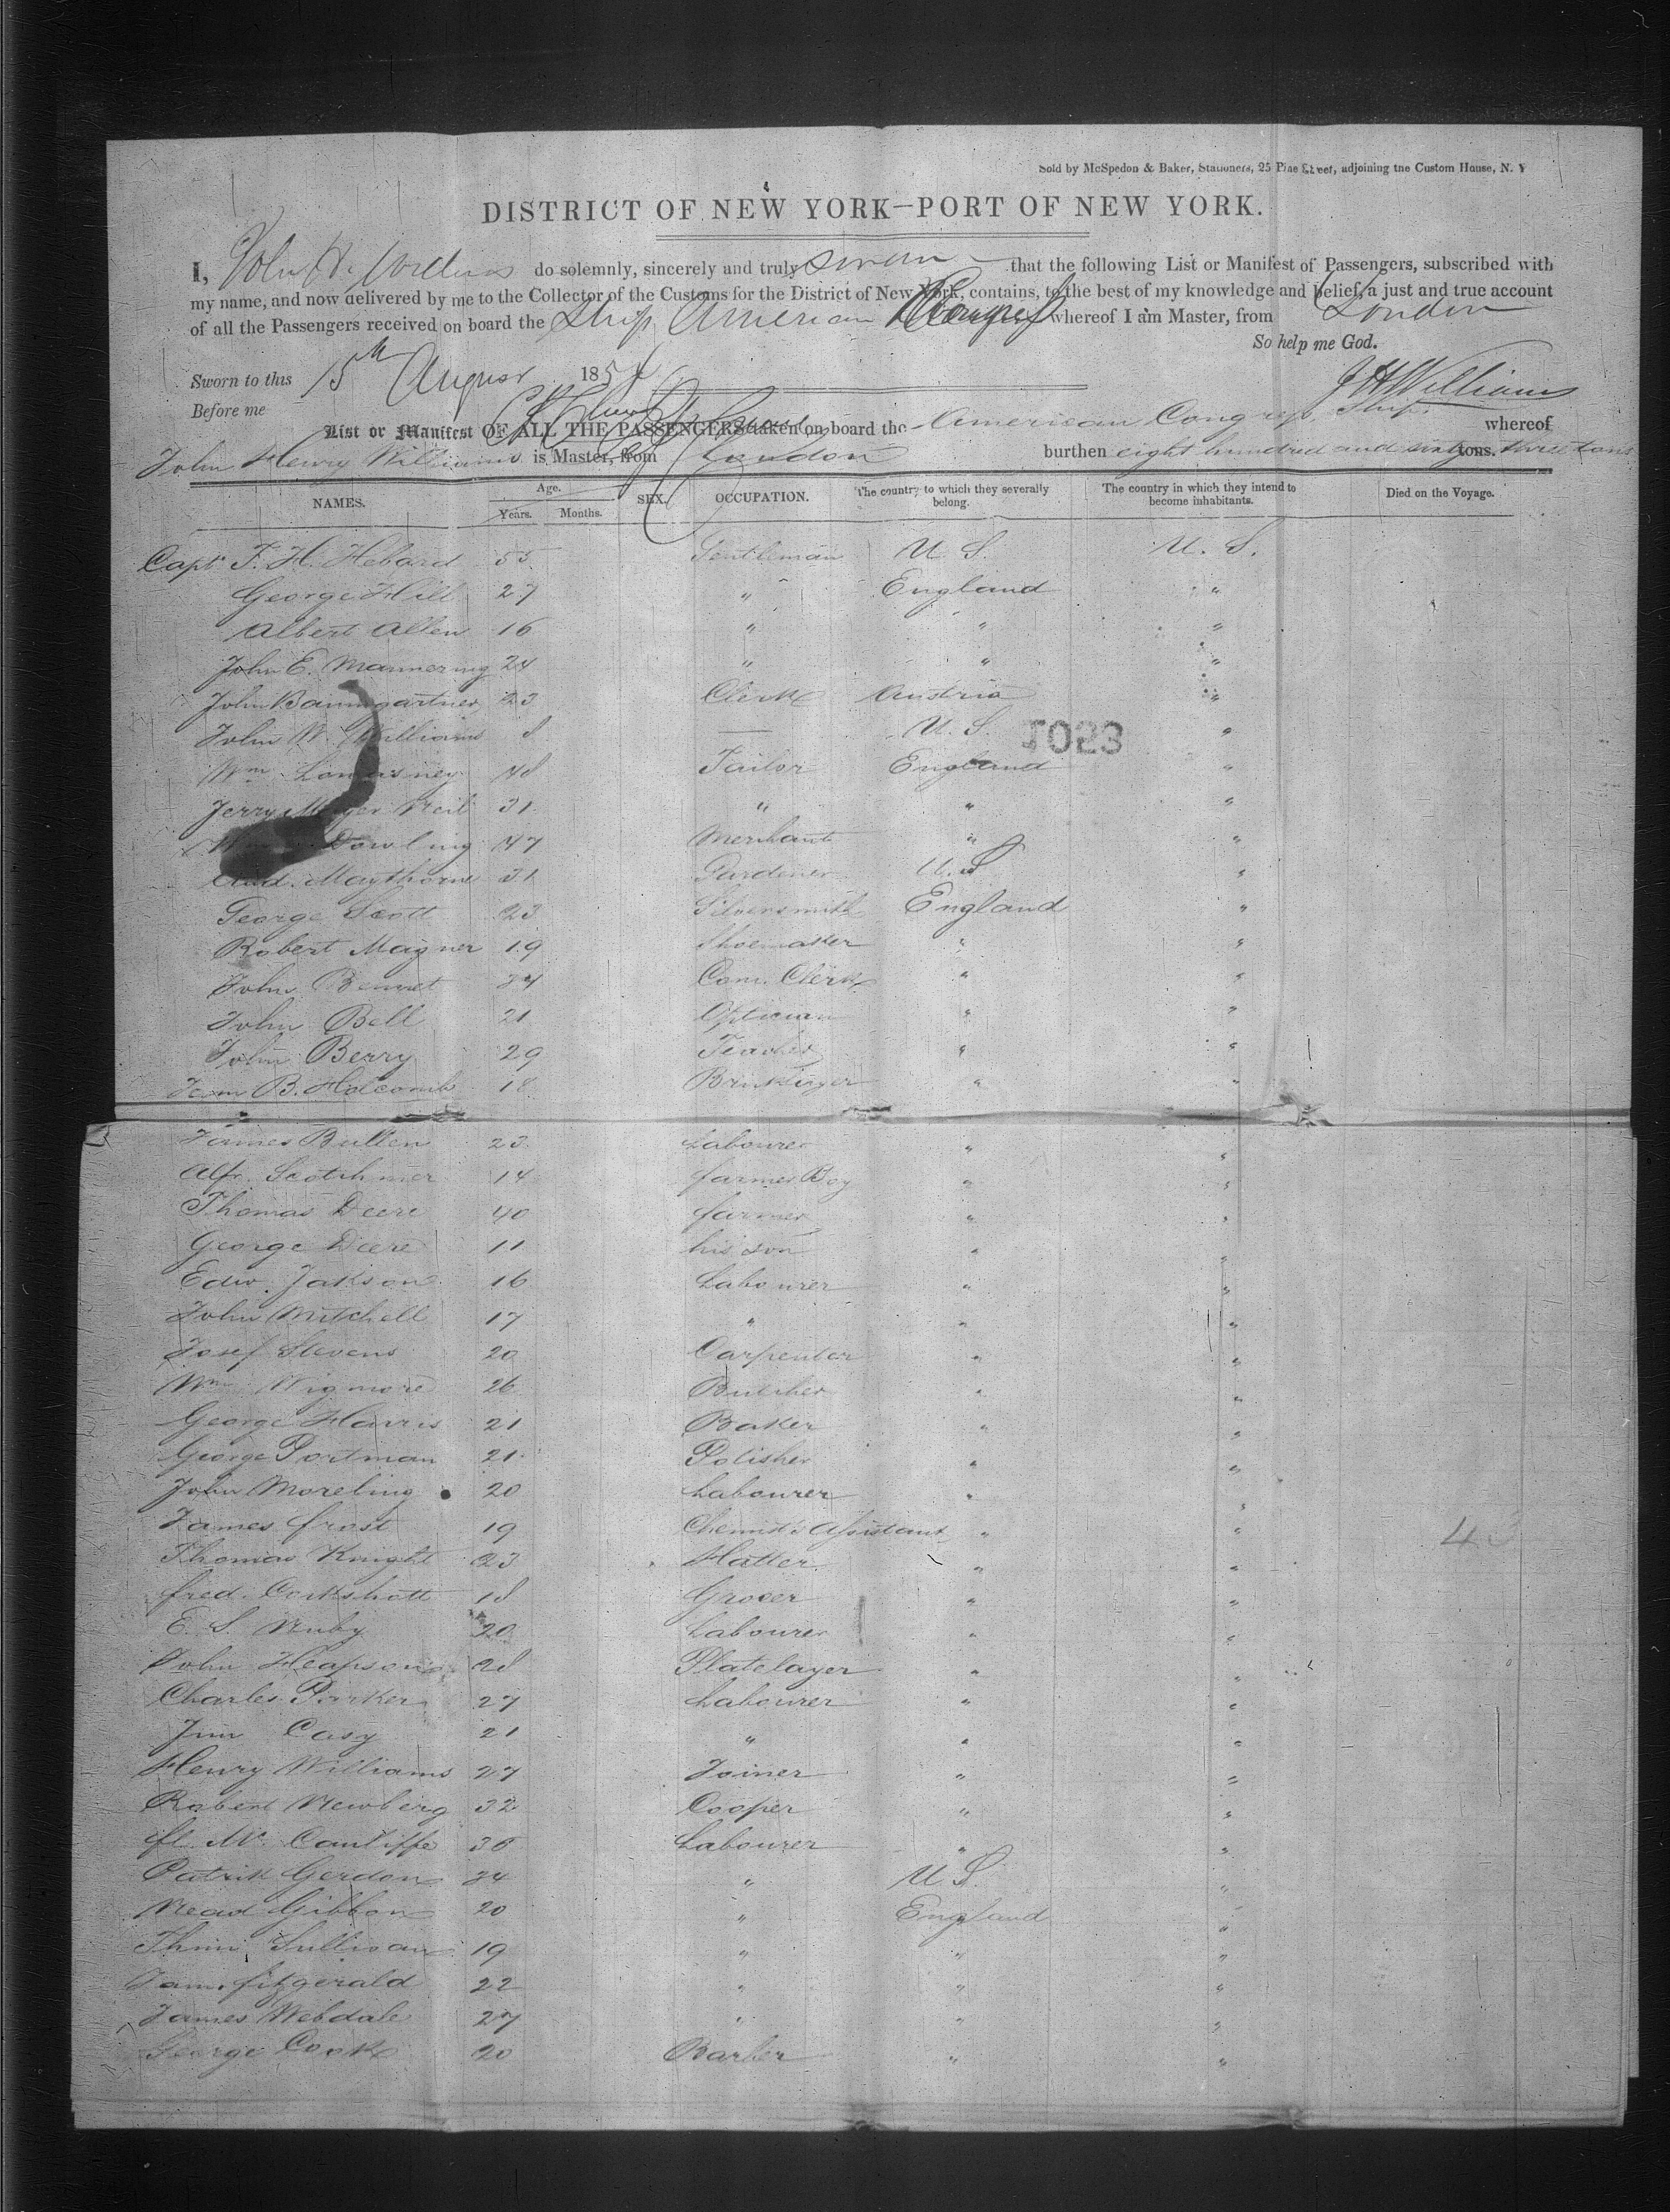 Sold by McSpedon & Baker, Stationers, 25 Pine Street, adjoining the Custom House, N. Y
DISTRICT OF NEW YORK—PORT OF NEW YORK.
I, John H. Williams do solemnly, sincerely and truly swear that the following List or Manifest of Passengers, subscribed with
my name, and now delivered by me to the Collector of the Customs for the District of New York, contains, to the best of my knowledge and belief, a just and true account
of all the Passengers received on board the Ship American Congress whereof I am Master, from London
So help me God.
Sworn to this 15th August 1854
J H Williams
Before me
List or Manifest OF ALL THE PASSENGERS taken on board the American Congress Ship. whereof
John Henry Williams is Master, from London burthen eight hundred and sixty three tons tons.
NAMES. Age. Years. Months. SEX. OCCUPATION. The country to which they severally belong. The country in which they intend to become inhabitants. Died on the Voyage.
Capt F. H. Hebard 55 Gentleman U S. U. S.
George Hill 27 " England "
Albert Allen 16 " " "
John E. Mannering 24 " " "
John Baumgartner 23 Clerk Austria "
John W. Williams 8 — U. S. "
1083
Wm Lomasney 48 Tailor England "
Jerry Meyer Neil 31 " " "
Dowling 47 Merchant " "
Maythorne 31 Gardener U. S "
George Scott 23 Silversmith England "
Robert Magner 19 Shoemaker " "
John Bennet 34 Com. Clerk " "
John Bell 21 Optician " "
John Berry 29 Teacher " "
B. Holcomb 18 Bricklayer " "
James Bullen 23 Labourer " "
Alfr. Scotchmer 14 farmer Boy " "
Thomas Deere 40 farmer " "
George Deere 11 his son " "
Edw. Jakson 16 Labourer " "
John Mitchell 17 " " "
Josef Stevens 20 Carpenter " "
Wm Wigmore 26 Butcher " "
George Harris 21 Baker " "
George Portman 21 Polisher " "
John Moreling 20 Labourer " "
James frost 19 Chemist's Assistant " "
43
Thomas Knight 23 Hatter " "
fred. Corkshott 18 Grocer " "
E. S. Nuby 20 Labourer " "
John Heapson 28 Platelayer " "
Charles Parker 27 Labourer " "
Jim Casy 21 " " "
Henry Williams 27 Joiner " "
Robert Newberg 32 Cooper " "
Mc Cantiffe 36 Labourer " "
Patrik Gerdon 34 " U S. "
Mead Gibbon 20 " England "
Sullivan 19 " " "
Jam. fitzgerald 22 " " "
James Webdale 27 " " "
George Cook 20 Barber " "